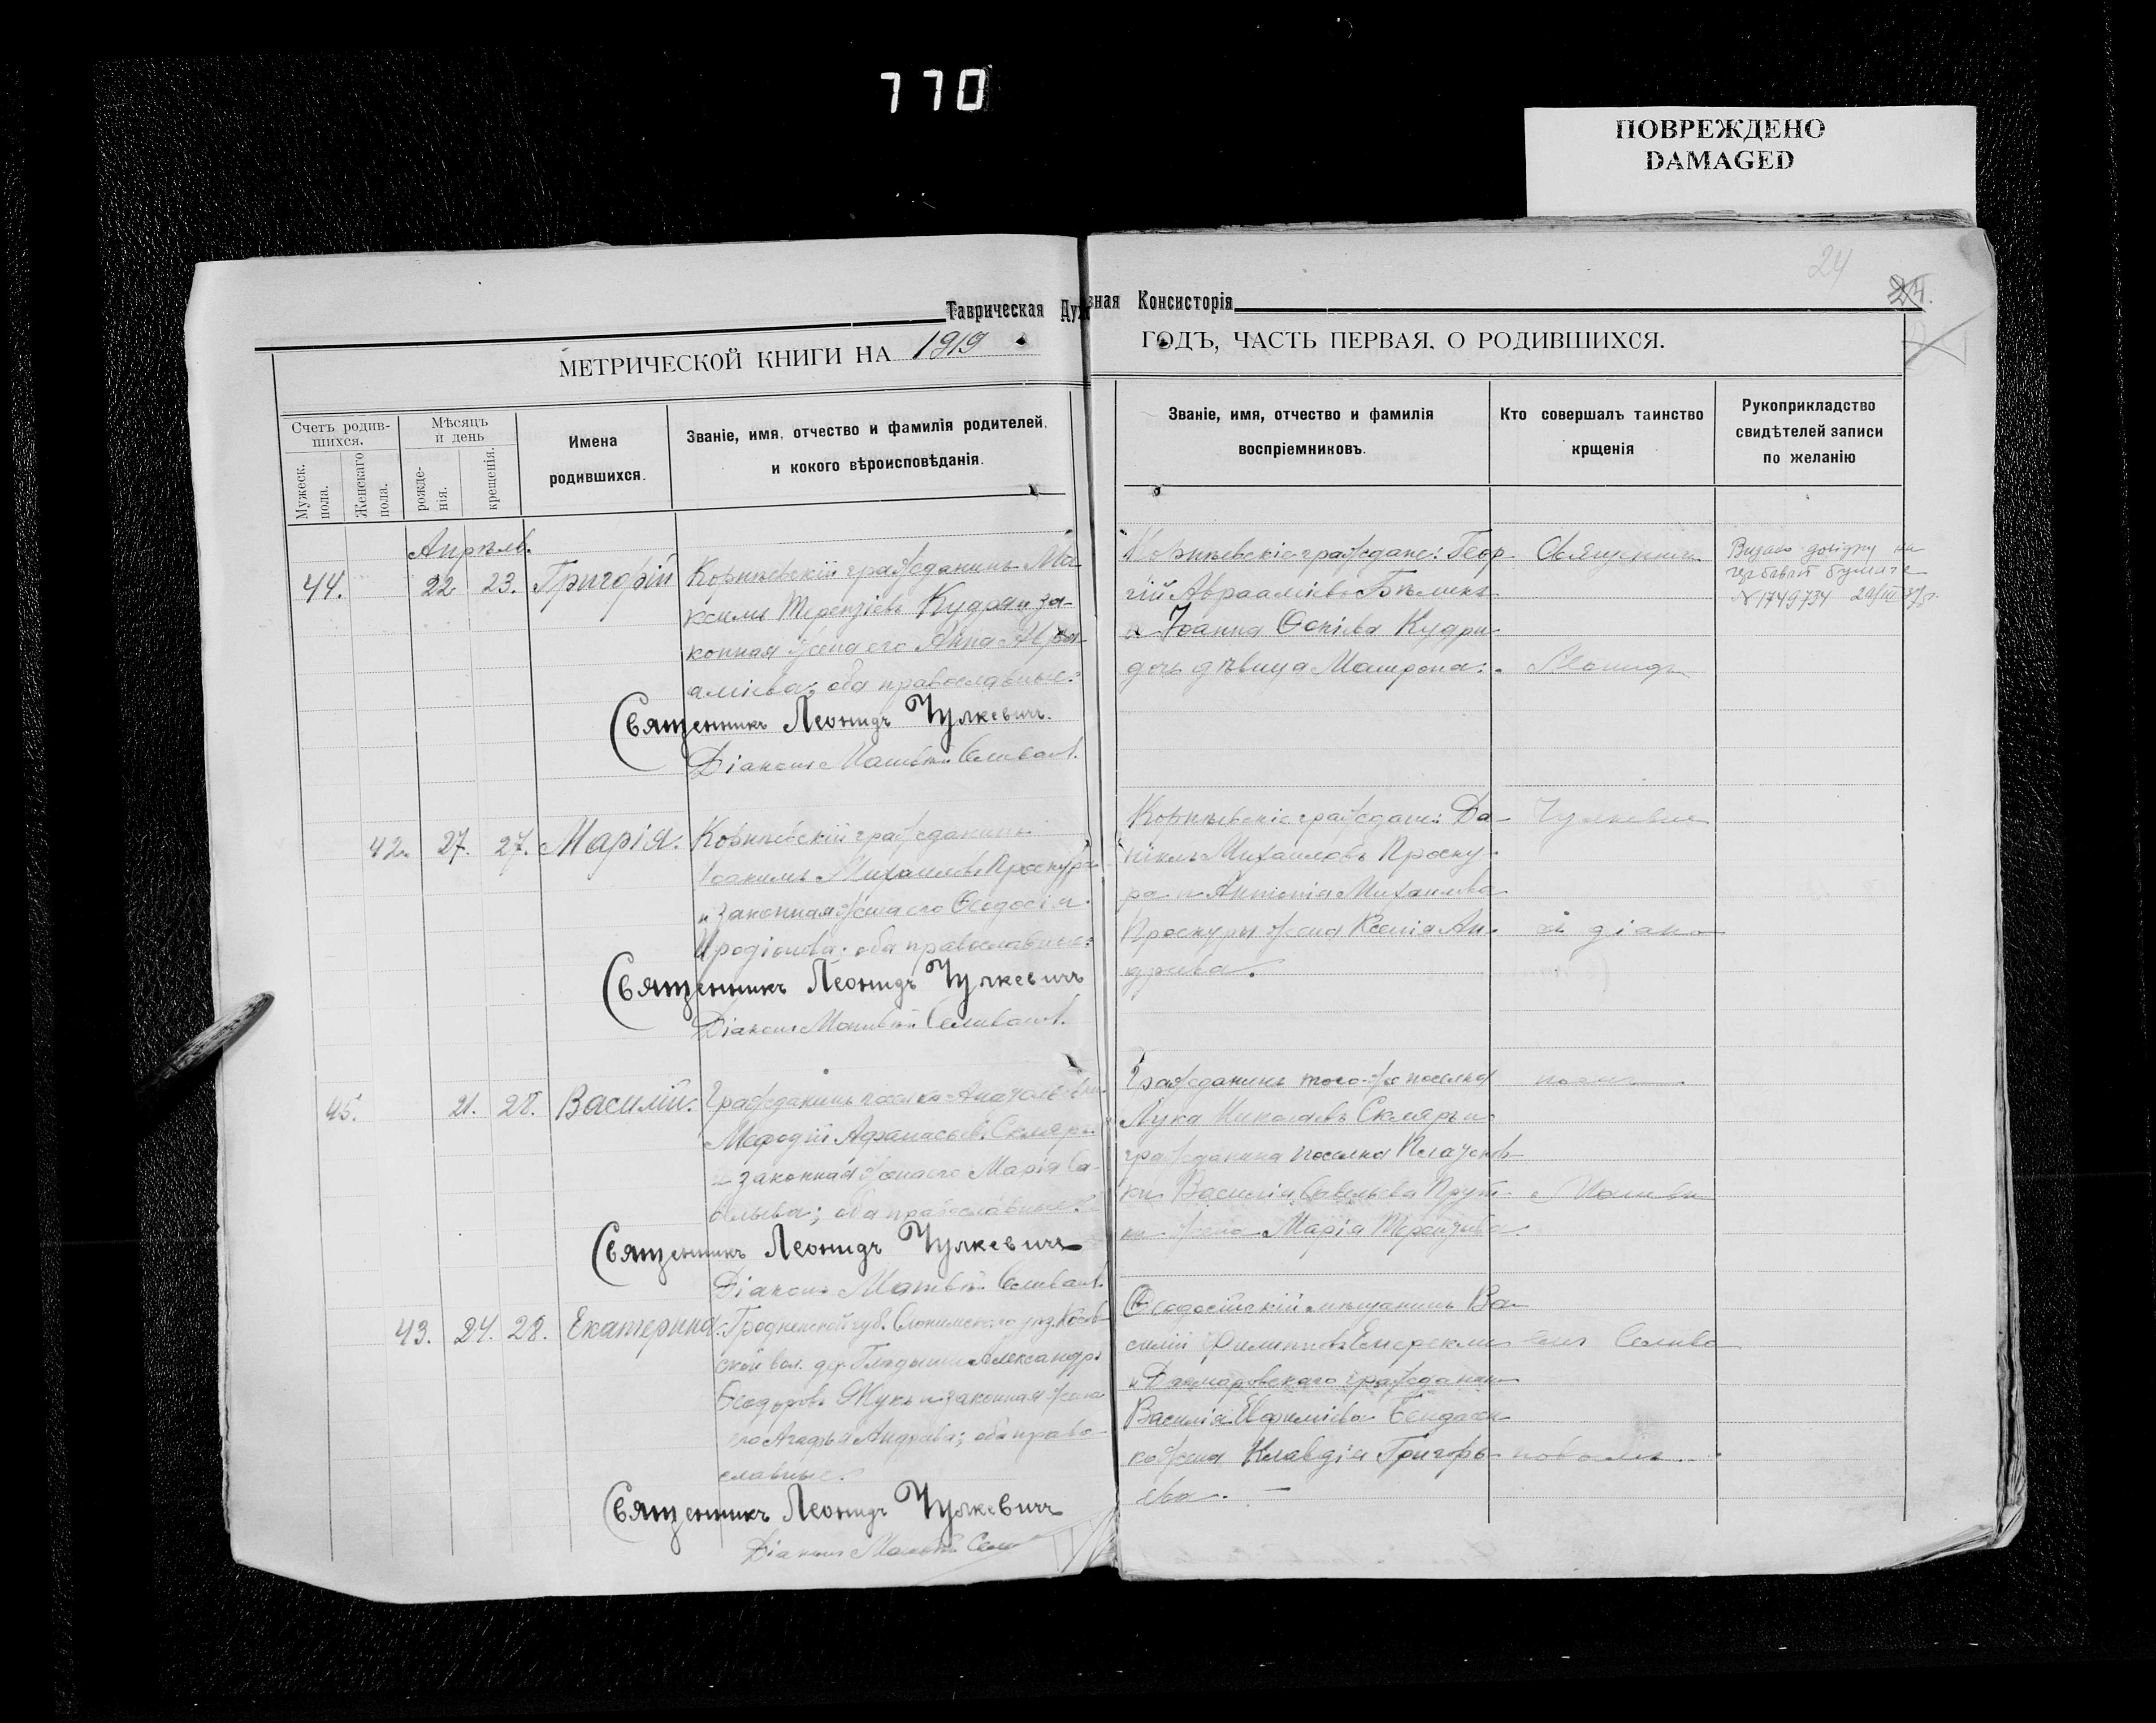 770
ПОВРЕЖДЕНО
DAMAGED
24
24.
Таврическая Духовная Консисторія
МЕТРИЧЕСКОЙ КНИГИ НА 1919 ГОДЪ, ЧАСТЬ ПЕРВАЯ, О РОДИВШИХСЯ.
Счетъ родив-
шихся.
Мужеск. пола.
Женскаго пола.
Мѣсяцъ
и день
рожде-
нія.
крещенія.
Имена
родившихся.
Званіе, имя, отчество и фамилія родителей,
и кокого вѣроисповѣданія.
Званіе, имя, отчество и фамилія
воспріемниковъ.
Кто совершалъ таинство
крщенія
Рукоприкладство
свидѣтелей записи
по желанію
Апрѣль.
44. 22 23. Григорій
Корнѣевскій гражданинъ Ма
ксимъ Терентіевъ Кудря и за-
конная жена его Анна Авра
аміева; оба православные.
Священникъ Леонидъ Чулкевичъ.
Діаконъ Матвѣй Селиванов.
Корнѣевскіе граждане: Геор-
гій Авраамієвъ
и Іоанна Осиіева Кудри
дочь дѣвица Матрона.
Священникъ
Леонидъ
Видано довідку на
гербовій бумаге
№ 1749734
42. 27. 27. Марія.
Корнѣевскій гражданинъ
Іоакимъ Михаиловъ Проскура
и законная жена его Ѳеодосія
Иродіонова; оба православные.
Священникъ Леонидъ Чулкевичъ
Діаконъ Матвѣй Селиванов.
Корнѣевскіе граждане: Да-
ніилъ Михаиловъ Проску-
ра и Антонія Михаилова
Проскуры жена Ксенія Ан-
дреева.
Чулкевичъ
съ діако
45. 21. 28. Василій.
Гражданинъ поселка
Меѳодій Аѳанасьевъ Скляръ
и законная жена его Марія Са-
вельева; оба православные.
Священникъ Леонидъ Чулкевичъ
Діаконъ Матвѣй Селиванов.
Гражданинъ того-же поселка
Лука Николаевъ Скляръ и
гражданина поселка
Василія Савельева
жена Марія Терентіева.
номъ
Матвѣ
43. 24. 28. Екатерина.
Гродненской губ. Слонимскаго уѣз. Косов-
ской вол. дер. Александръ
Ѳеодоровъ Жукъ и законная жена
его Агафья Андреева; оба право-
славные.
Священникъ Леонидъ Чулкевичъ
Діаконъ Матвѣй
Ѳеодосійскій мѣщанинъ Ва-
силій Филипповъ
и гражданина
Василія Евфиміева
жена Клавдія Григорь-
ева.
емъ Селива
новымъ.